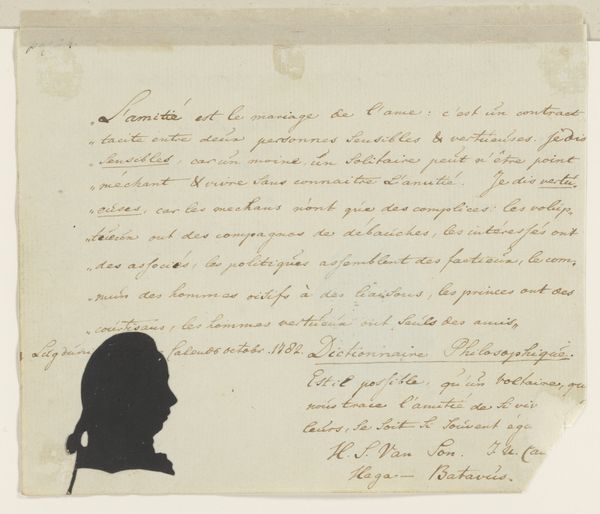 „L'amitié est le mariage de l'ame: c'est un contract
„tacite entre deux personnes sensibles & vertueuses. je dis
„sensibles, car un moine, un solitaire peut n'être point
„méchant & vivre sans connaitre L'amitié. Je dis vertu-
„euses, car les mechans n'ont que des complices: les volup-
„tueux ont des compagnons de débauches, les intéressés ont
„des associés, les politiques assemblent des factieux, le com-
„mun des hommes oisifs à des liaisons, les princes ont des
„courtisans, les hommes vertueux ont seuls des amis„
Lugduni octobr. 1782. Dictionnaire Philosophique.
Est-il possible, qu'un Voltaire, qu
nous trace l'amitié de si viv
leurs, se soit si souvent éga
H. S. Van Son. J. U. Can
Haga — Batavus.